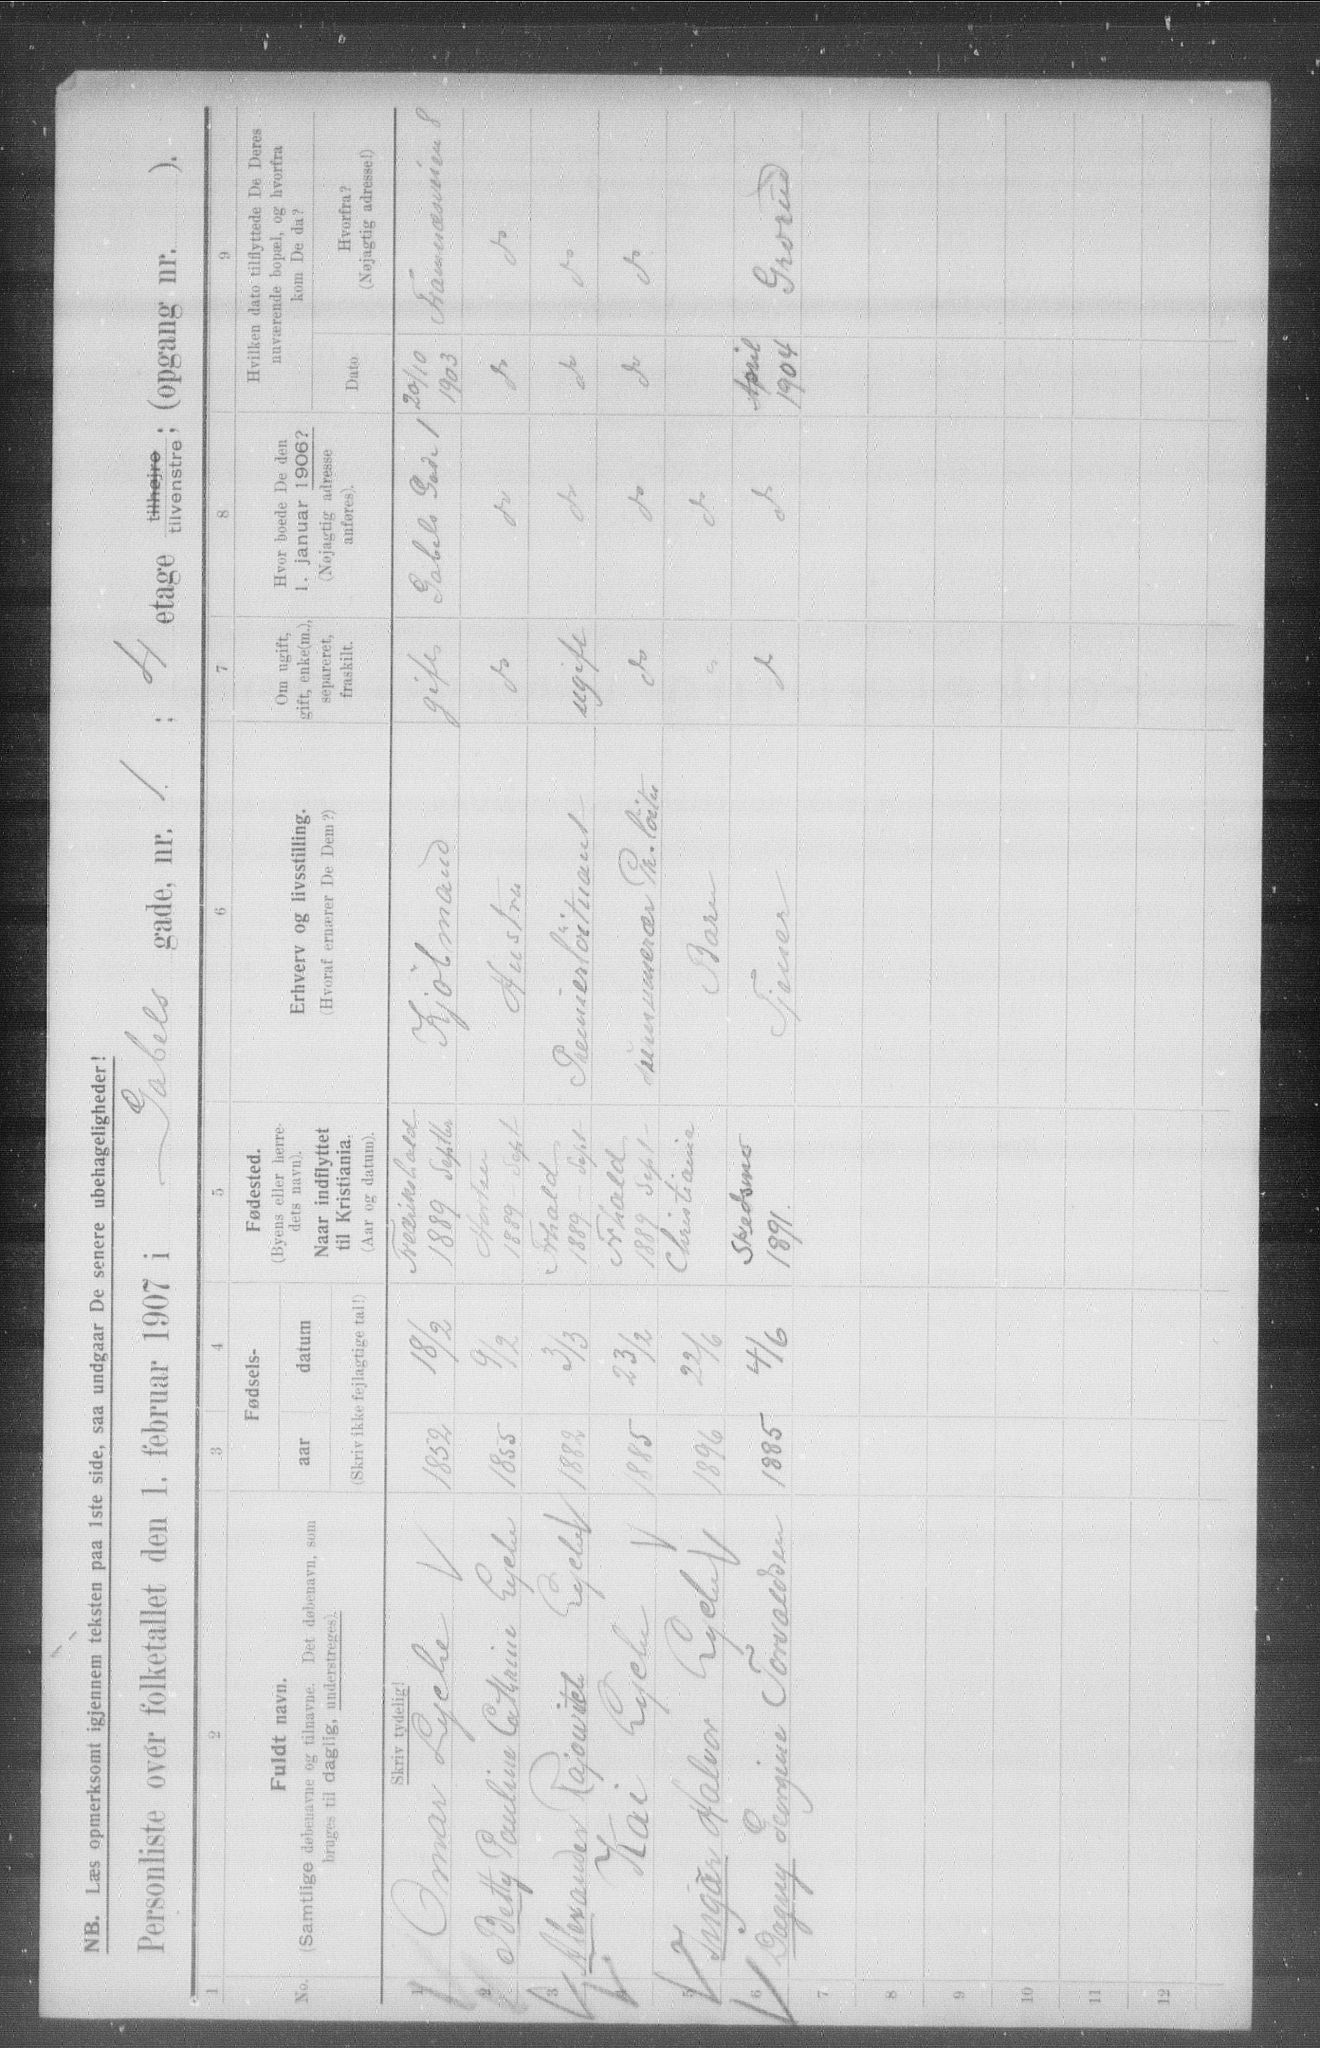 NB. Læs opmerksomt igjennem teksten paa 1ste side, saa undgaar De senere ubehageligheder!
Personliste over folketallet den 1. februar 1907 i Gabels gade, nr. 1 ; 4 etage tilhøjre tilvenstre; (opgang nr. ).
1 2 3 4 5 6 7 8 9
No.
Fuldt navn.
(Samtlige døbenavne og tilnavne. Det døbenavn, som
bruges til daglig, understreges).
Fødsels-
aar datum
(Skriv ikke fejlagtige tal!)
Fødested.
(Byens eller herre-
dets navn).
Naar indflyttet
til Kristiania.
(Aar og datum).
Erhverv og livsstilling.
(Hvoraf ernærer De Dem?)
Om ugift,
gift, enke(m.),
separeret,
fraskilt.
Hvor boede De den
1. januar 1906?
(Nøjagtig adresse
anføres).
Hvilken dato tilflyttede De Deres
nuværende bopæl, og hvorfra
kom De da?
Dato
Hvorfra?
(Nøjagtig adresse!)
Skriv tydelig!
1 Omar Lyche 1852 18/2 Fredrikshald 1889 Septbr Kjöbmand gift Gabels Gade 1 20/10 1903 8
2 Betty Pauline Cathrine Lyche 1855 9/2 Horten 1889 Sept Hustru do do do do
3 Alexander Lyche 1882 3/3 Fhald 1889 Sept Premierlöitnant ugift do do do
4 Kai Lyche 1885 23/2 Fhald 1889 Sept do do do do
5 Ingar Halvor Lyche 1896 22/6 Christiania Barn do
6 Dagny Torvaldsen 1885 4/6 Skedsmo 1891. Tjener do do April 1904 Grorud
7
8
9
10
11
12